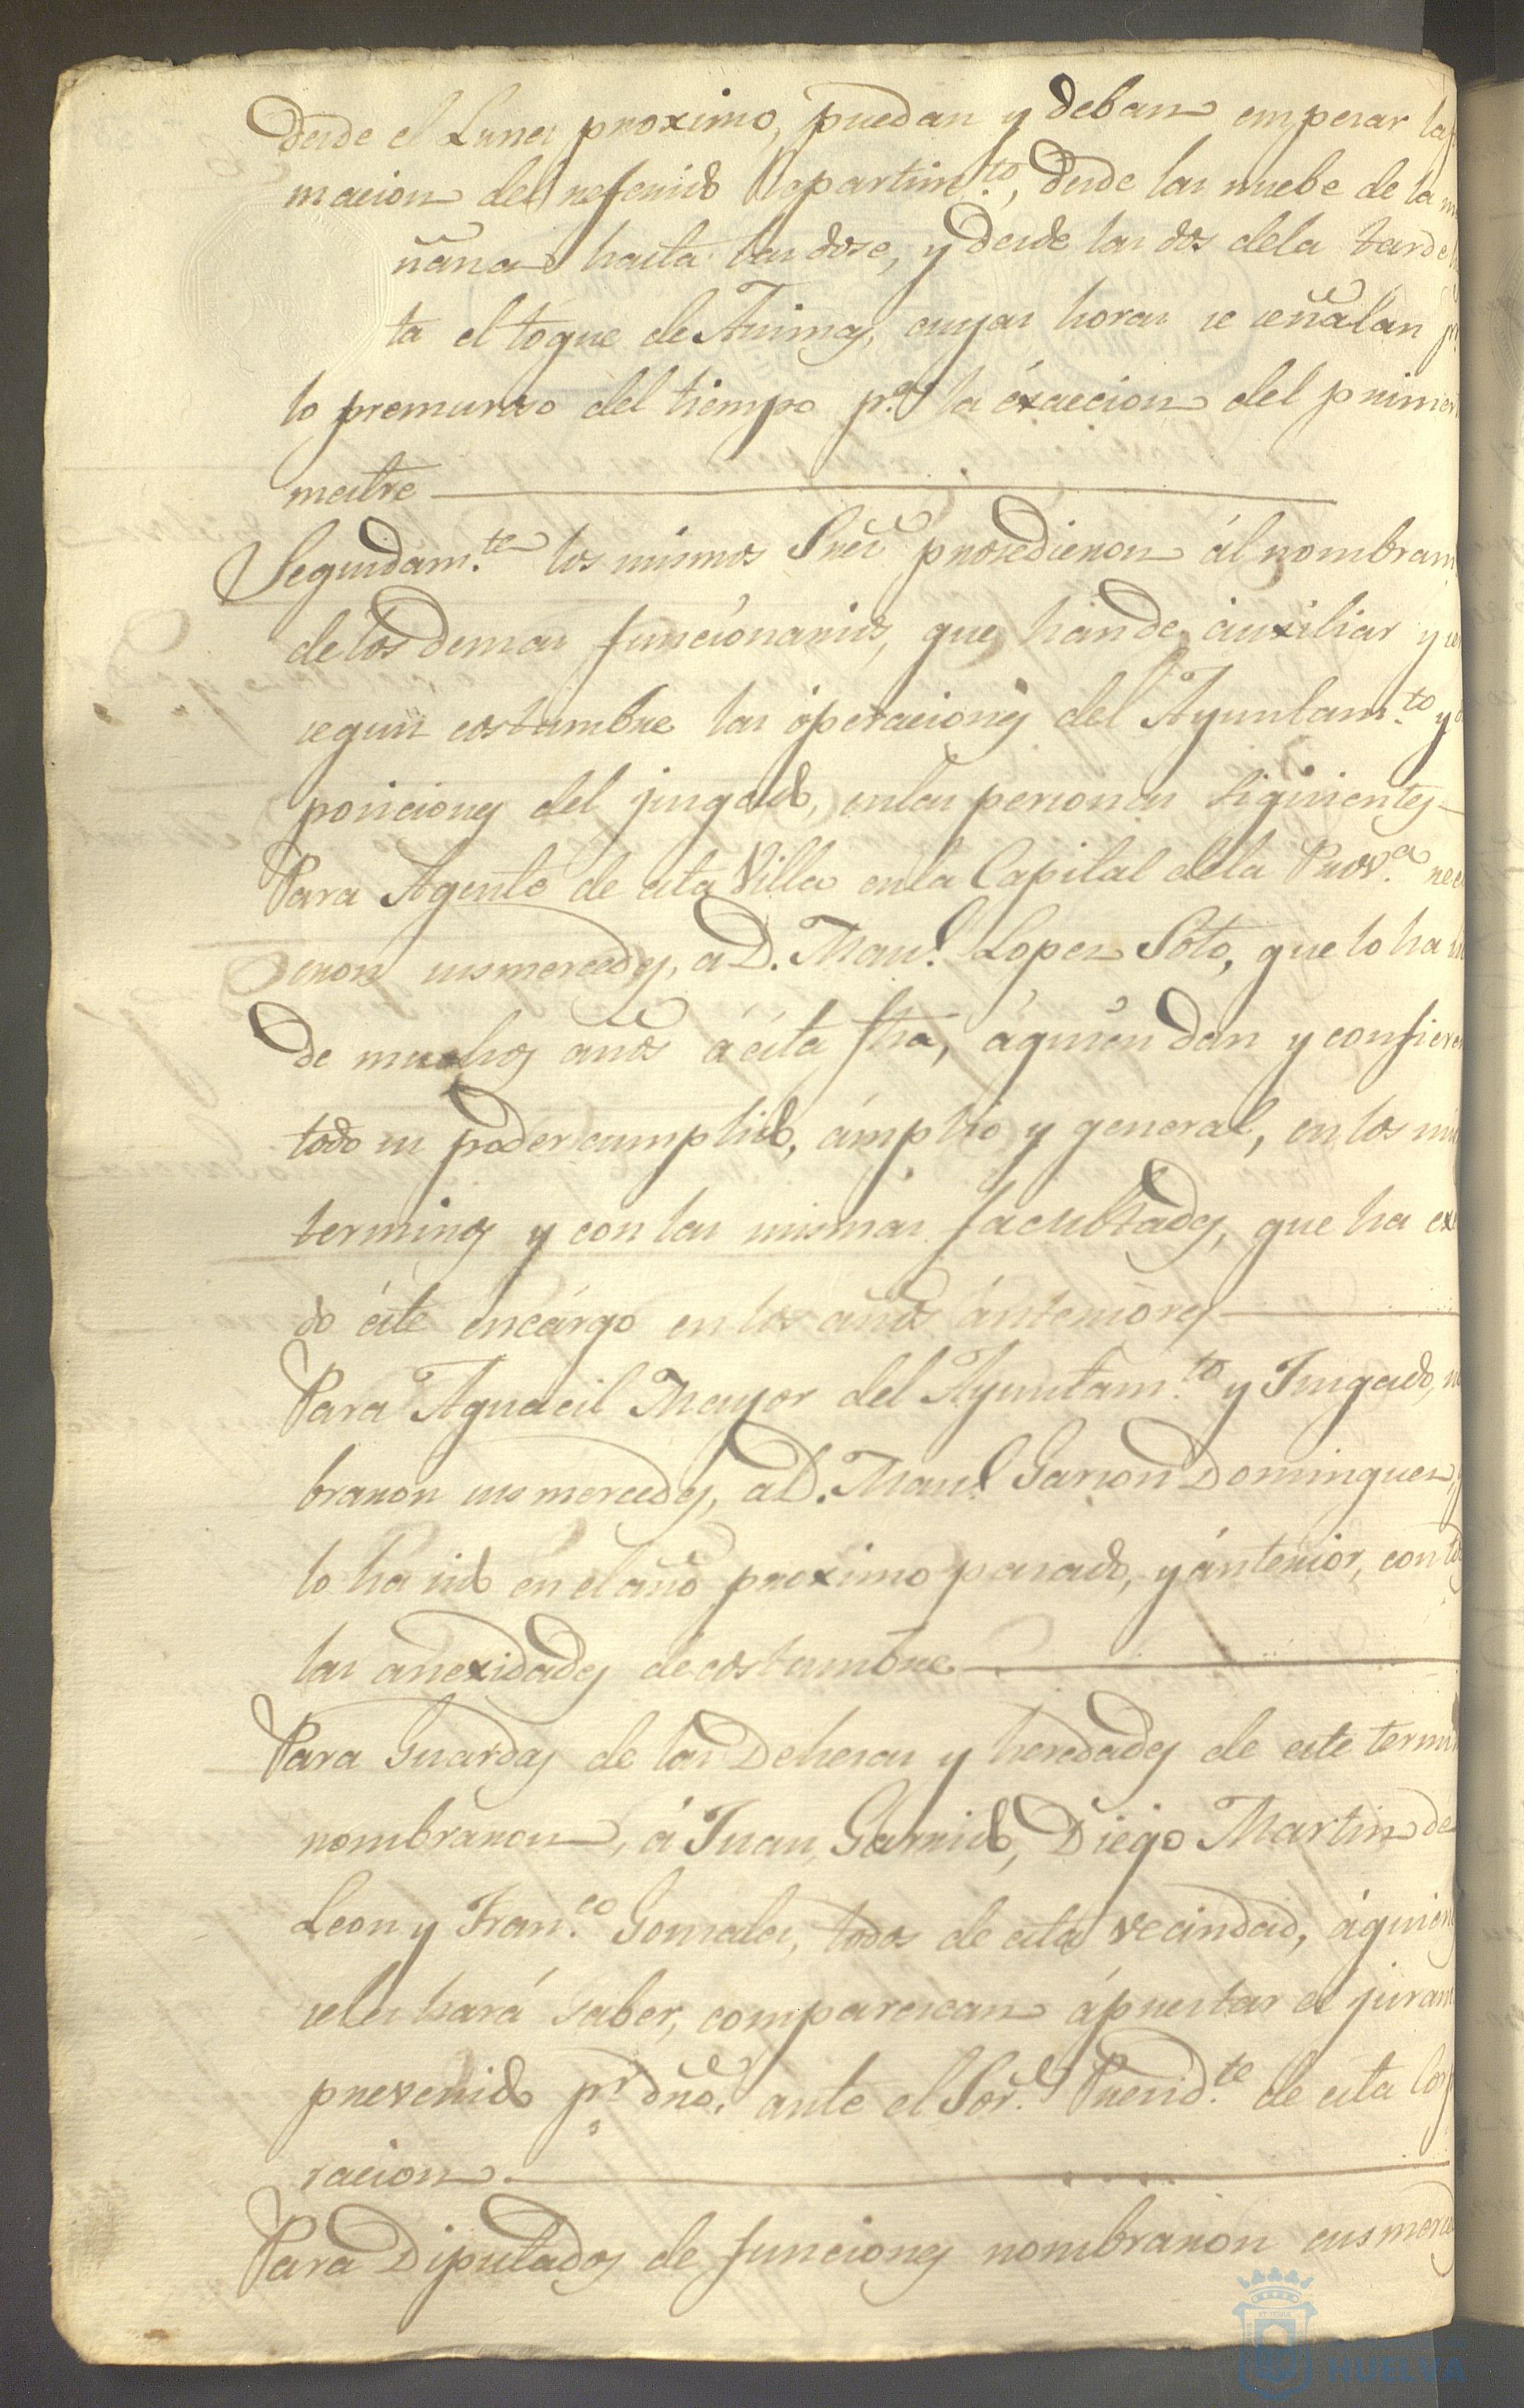 desde el Lunes proximo, puedan y deban empesar la
macion del referido Repartim.to, desde las nuebe de la
ñana hasta las dose, y desde las dos dela tarde
ta el toque de Animas, cuyas horas se señalan
lo premuroso del tiempo p.a la éxaccion del primer
mestre
Seguidam.te los mismos Sres prosedieron ál nombram
delos demas funcionarios, que hande auxiliar y
segun costumbre las óperaciones del Ayuntam.to y
posiciones del jusgado, enlas personas siguientes
Para Agente de esta Villa enla Capital dela Prov.a
eron susmercedes, a D. Man.l Lopez Soto, que lo ha
de muchos años á ésta fha, áquien dan y confieren
todo su poder cumplido, ámplio y general, en los
terminos y con las mismas facultades, que ha
do éste encárgo en los años ánteriores
Para Aguacil Mayor del Ayuntam.to y Jusgado,
braron susmercedes, a D. Man.l Garson Dominguez,
lo ha sido en el año proximo pasado, y ánterior, con
las anexidades de costumbre
Para Guardas de las Dehesas y heredades de este
nombraron, á Juan Garrido, Diego Martin de
Leon y Fran.co Gonzales, todos de esta vecindad, áquienes
seles hará saber, comparescan á prestar el
prevenido p.r dro. ante el Sor. Presid.te de esta
racion
Para Diputados de funciones nombraron susmerced
HUELVA